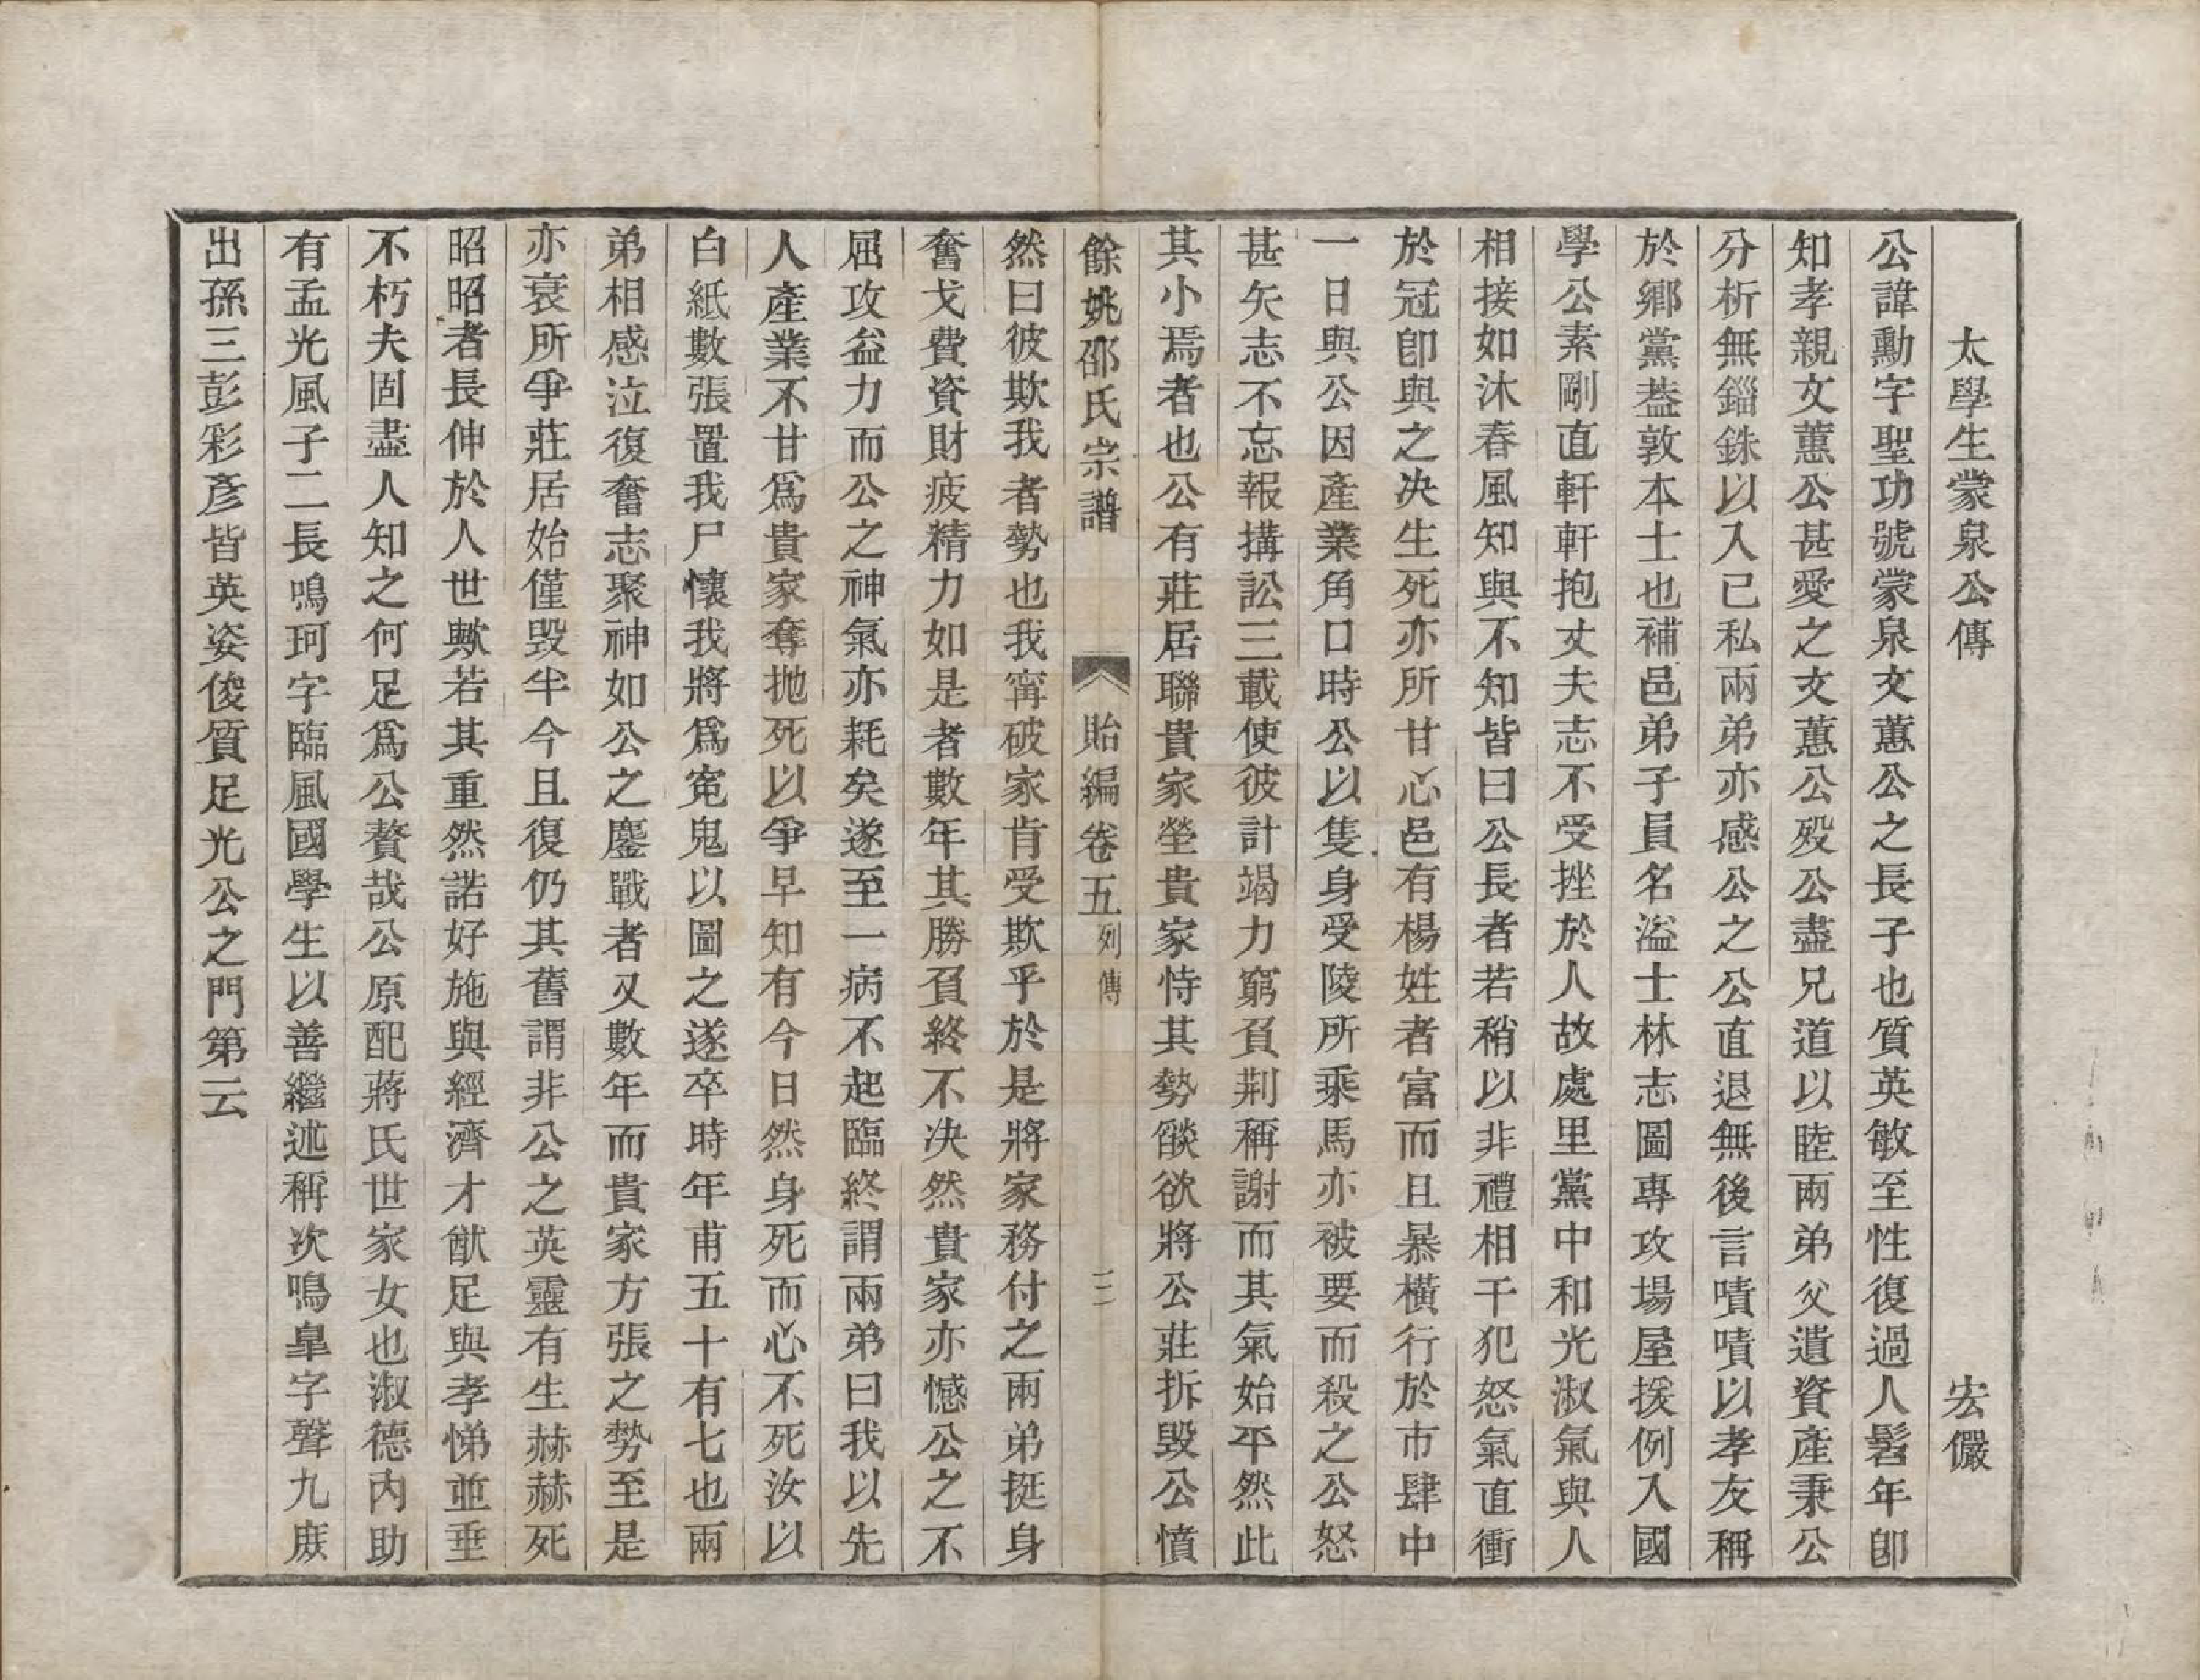 太學生蒙泉公傳　宏儼
公諱勳字聖功號蒙泉文蕙公之長子也質英敏至性復過人髫年卽
知孝親文蕙公甚愛之文蕙公歿公盡兄道以睦兩弟父遺資產秉公
分析無錙銖以入已私兩弟亦感公之公直退無後言嘖嘖以孝友稱
於鄉黨葢敦本士也補邑弟子員名溢士林志圖專攻場屋援例入國
學公素剛直軒軒抱丈夫志不受挫於人故處里黨中和光淑氣與人
相接如沐春風知與不知皆曰公長者若稍以非禮相干犯怒氣直衝
於冠卽與之决生死亦所甘心邑有楊姓者富而且暴橫行於市肆中
一日與公因產業角口時公以隻身受陵所乘馬亦被要而殺之公怒
甚矢志不忘報搆訟三載使彼計竭力窮負荆稱謝而其氣始平然此
其小焉者也公有莊居聯貴家塋貴家恃其勢燄欲將公莊拆毀公憤
餘姚邵氏宗譜　貽編卷五列傳　三
然曰彼欺我者勢也我甯破家肯受欺乎於是將家務付之兩弟挺身
奮戈費資財疲精力如是者數年其勝負終不决然貴家亦憾公之不
屈攻益力而公之神氣亦耗矣遂至一病不起臨終謂兩弟曰我以先
人產業不甘爲貴家奪拋死以爭早知有今日然身死而心不死汝以
白紙數張置我尸懷我將爲寃鬼以圖之遂卒時年甫五十有七也兩
弟相感泣復奮志聚神如公之鏖戰者又數年而貴家方張之勢至是
亦衰所爭莊居始僅毀半今且復仍其舊謂非公之英靈有生赫赫死
昭昭者長伸於人世歟若其重然諾好施與經濟才猷足與孝悌並垂
不朽夫固盡人知之何足爲公贅哉公原配蔣氏世家女也淑德內助
有孟光風子二長鳴珂字臨風國學生以善繼述稱次鳴臯字聲九庶
出孫三彭彩彥皆英姿俊質足光公之門第云